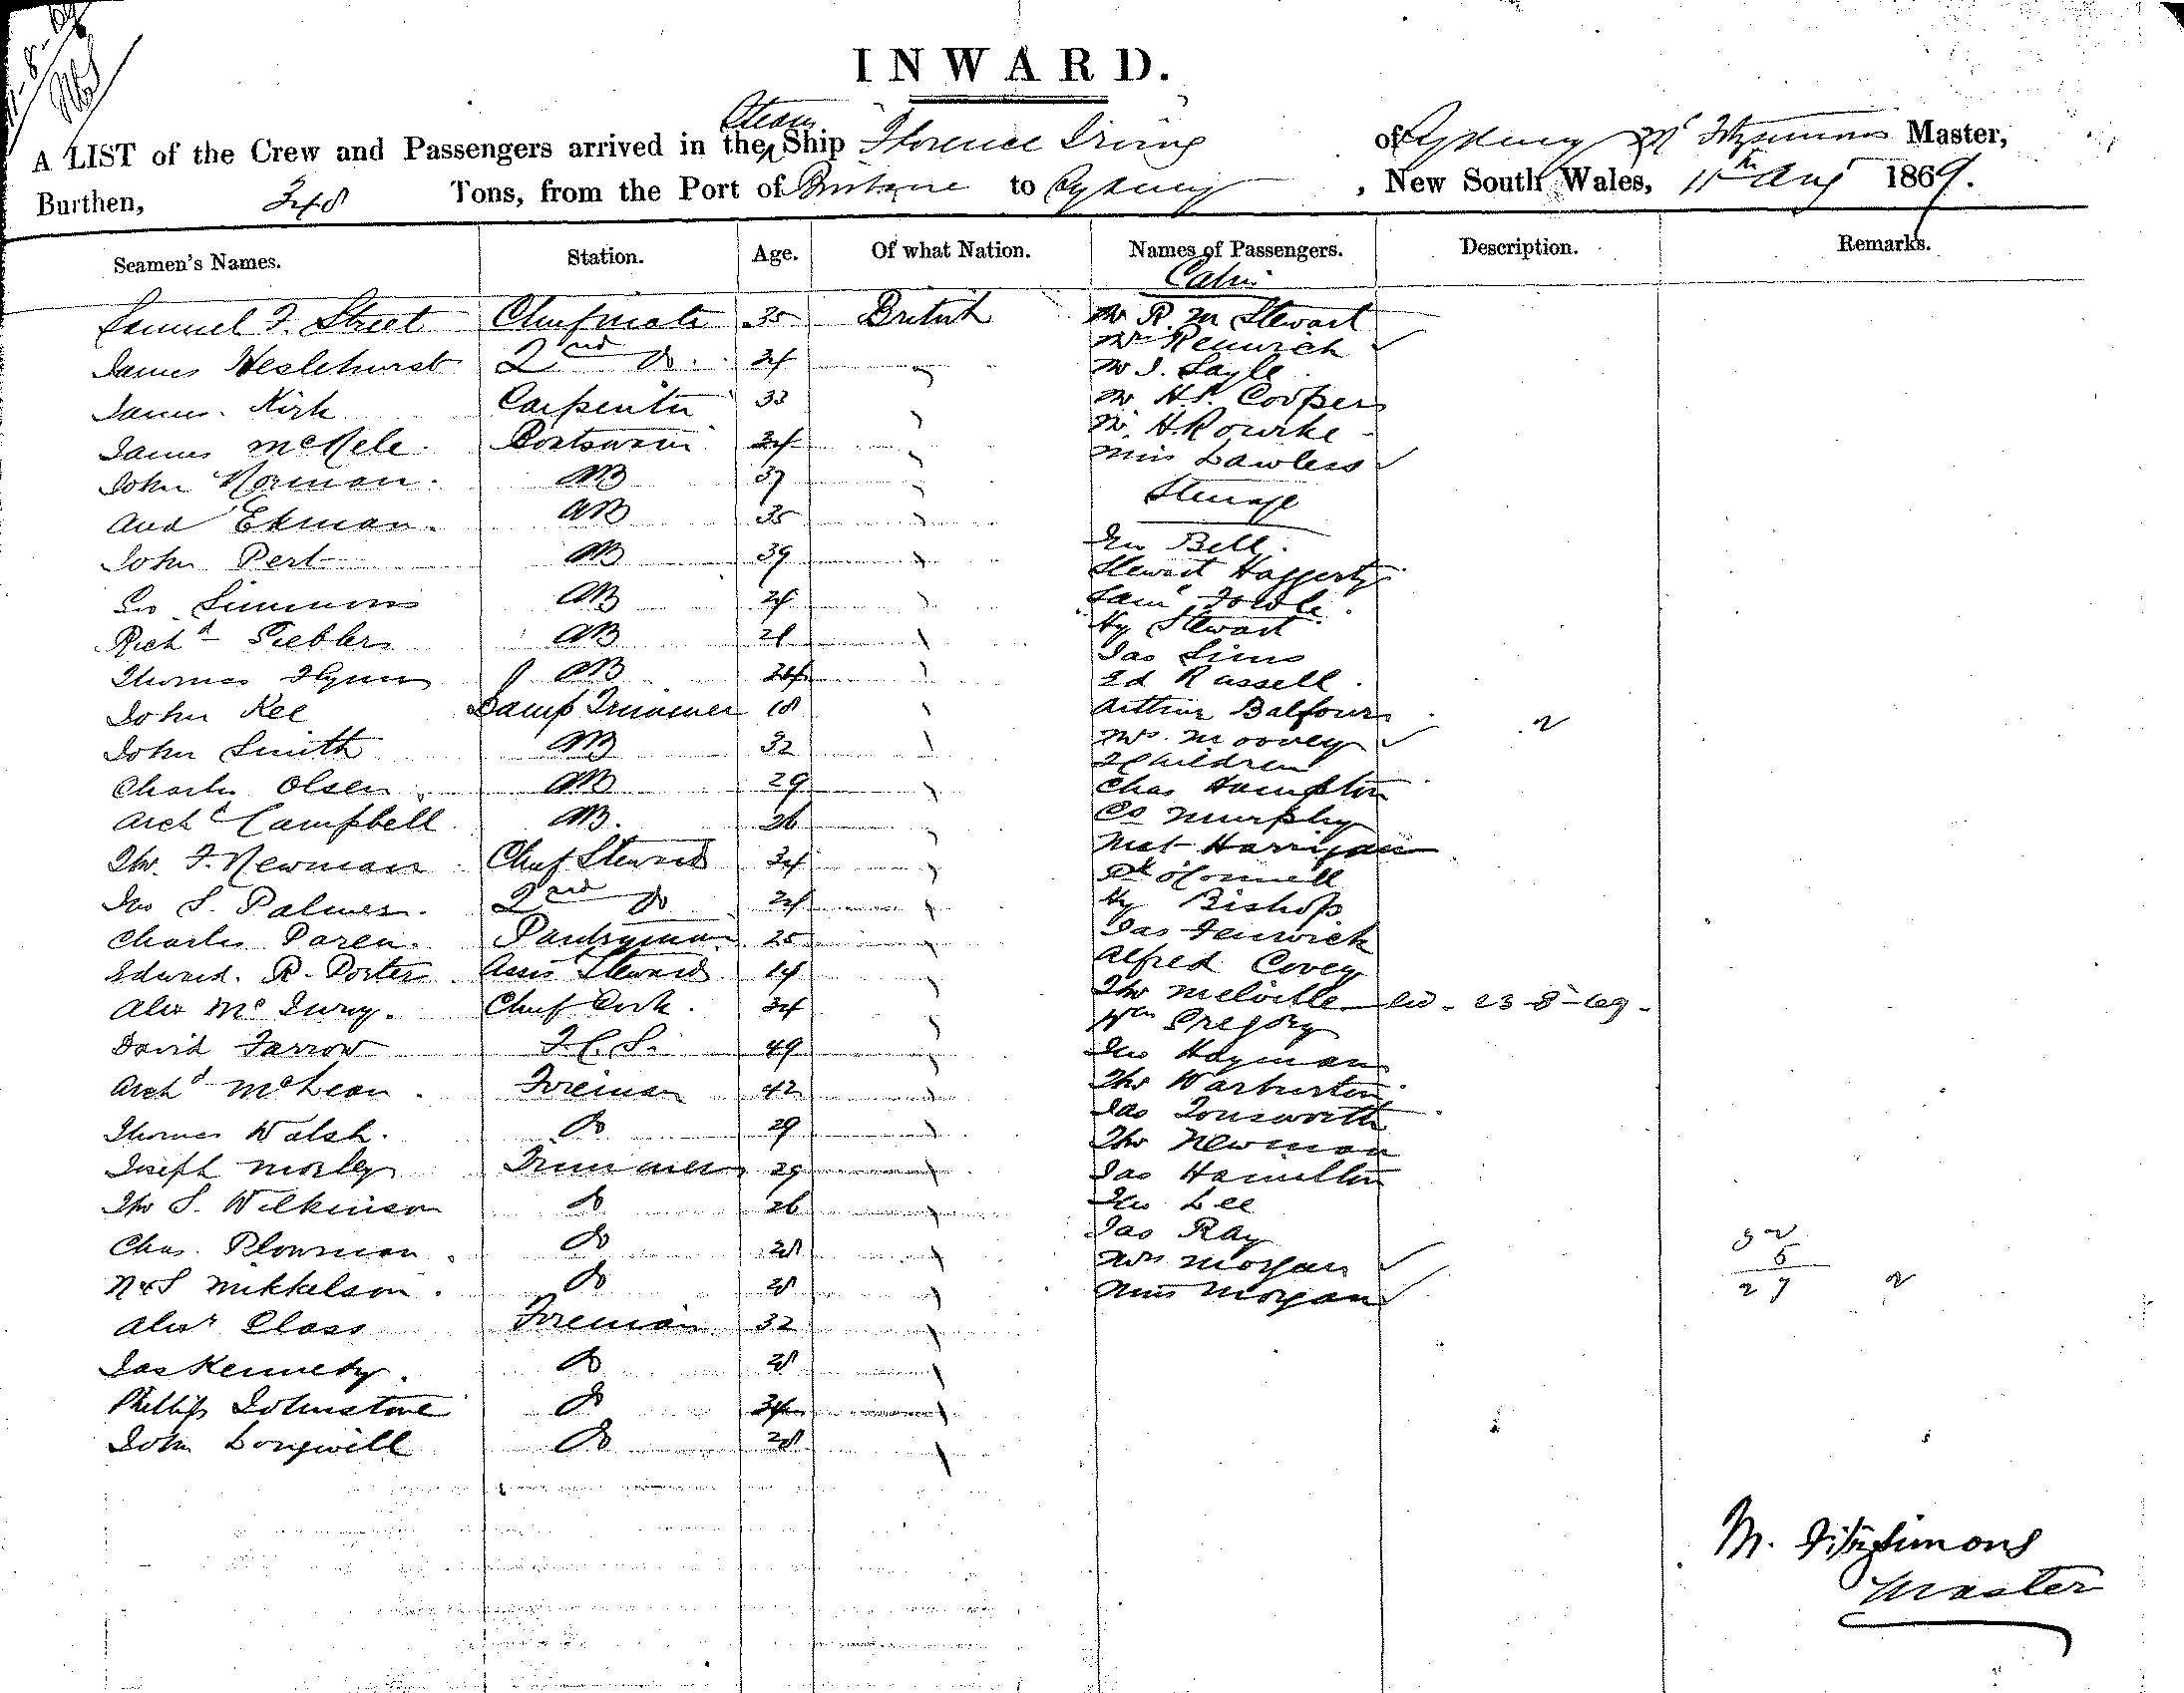 INWARD.
A LIST of the Crew and Passengers arrived in the Steam Ship Florence Irving of Sydney M Fitzsimons Master,
Burthen, 348 Tons, from the Port of Brisbane to Sydney, New South Wales, 11th Aug 1869.
Seamen's Names. Station. Age. Of what Nation. Names of Passengers. Description. Remarks.
Cabin
Samuel F. Street Chief mate 35 British Mr R. M Stewart
Mrs Renwick
James Heslehurst 2nd Do. 24 Mr J. Sayle
James Kirk Carpenter 33 Mr H.P. Cooper
Mr H Rourke
James McKele Boatswain 24 Miss Lawless
John Norman AB 37 Steerage
And Ekman AB 35
Jno Bell
John Pert AB 39 Stewart Haggerty
Simmons AB 24 Saml Fowle
Richd AB 21 Hy Stewart
Jas Sims
Thomas Flynn AB 24 Ed Russell
John Kee Lamp Trimmer 18 Arthur Balfour 2
John Smith AB 32 Mrs Moovey
2 Children
Charles Olsen AB 29 Chas Hampton
Archd Campbell AB 26 Co Murphy
Mat Harrigan
Tho. F. Newman Chief Steward 34 O'Connell
Jno S. Palmer 2nd Do 24 Hy Bishop
Charles Paren Pantryman 25 Jas Fenwick
Edward R. Porter Assis Steward 14 Alfred Covey
Alex Mc Chief Cook 34 Tho Melville 23-8-69
Wm Gregory
David Farrow F.C.S. 49 Jno Hayman
Archd McLean Fireman 42 Tho Warburton
Jas Tonsworth
Thomas Walsh Do 29 Tho Newman
Joseph Morley Trimmer 29 Jas Hamilton
Tho S. Wilkinson Do 26 Jno Lee
Jas Ray
Chas. Plowman Do 28 Mrs Morgan
N & S Mikkelson Do 28 Miss Morgan
32
5
27 2
Alexr Class Fireman 32
Jas Kennedy Do 28
Phillip Johnstone Do 34
John Longwill Do 28
M. Fitzsimons
Master